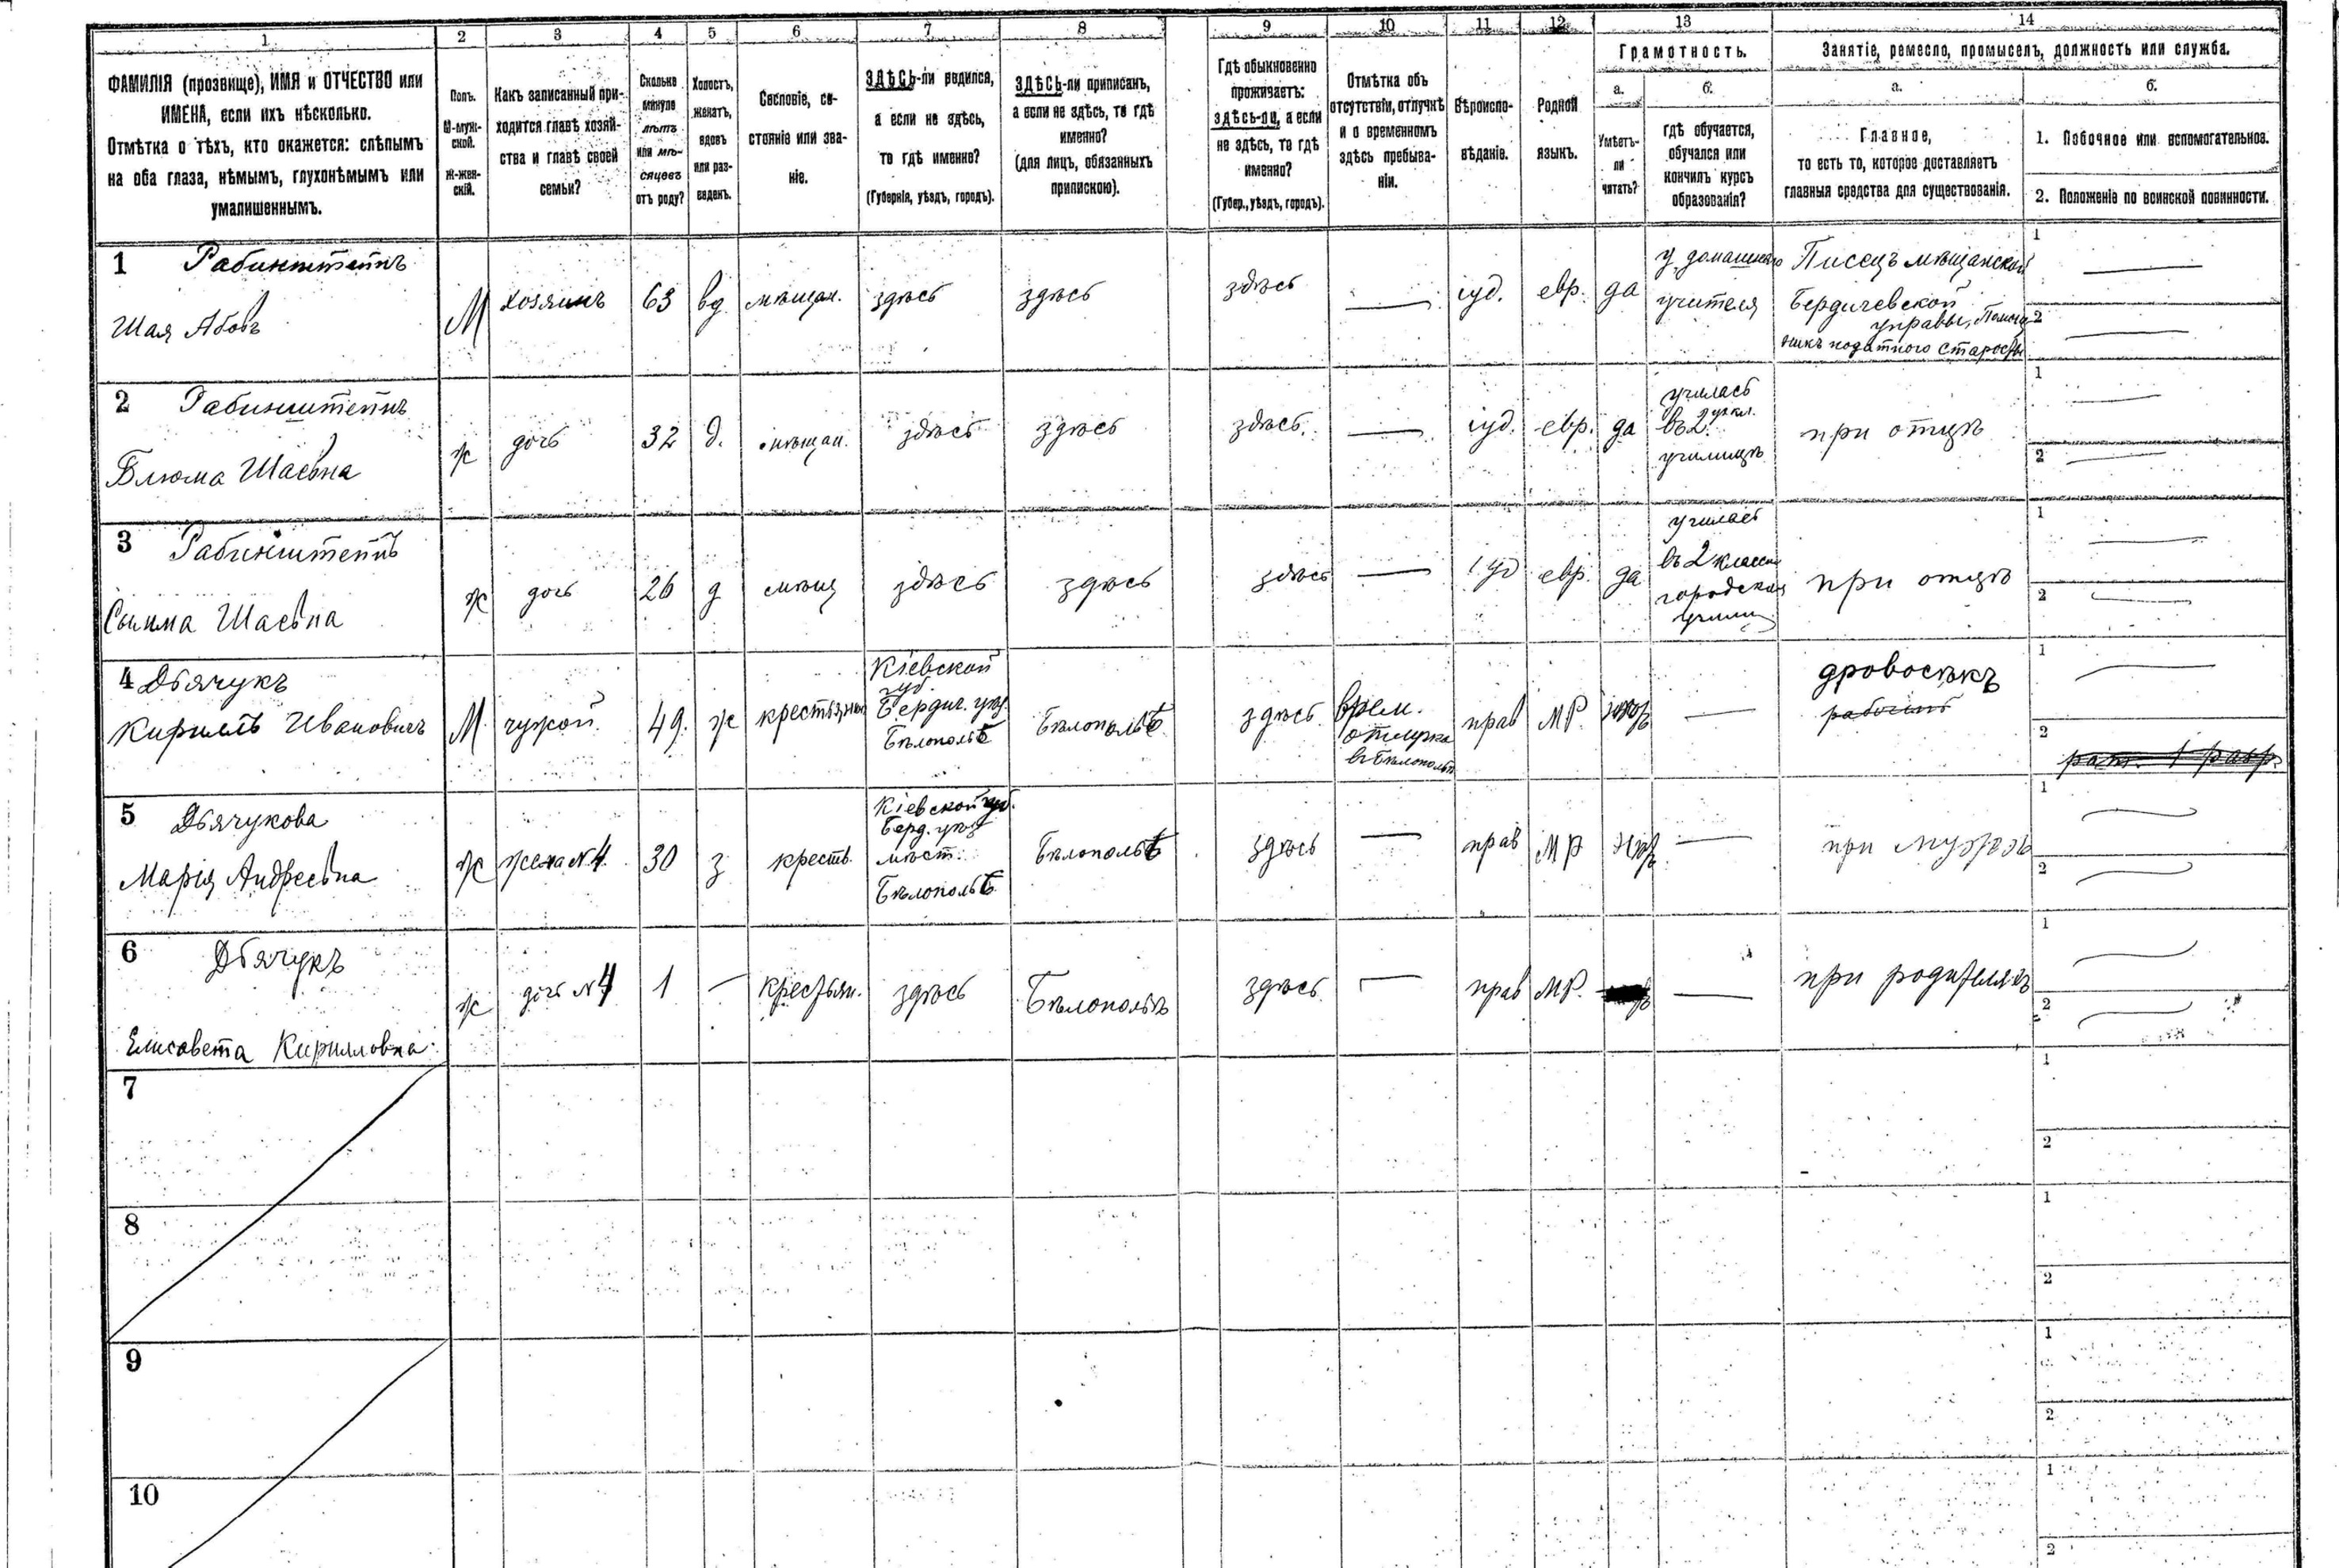 1 2 3 4 5 6 7 8 9 10 11 12 13 14
ФАМИЛІЯ (прозвище), ИМЯ и ОТЧЕСТВО или
ИМЕНА, если ихъ нѣсколько.
Отмѣтка о тѣхъ, кто окажется: слѣпымъ
на оба глаза, нѣмымъ, глухонѣмымъ или
умалишеннымъ.
Полъ.
М-муж-
ской.
Ж-жен-
скій.
Какъ записанный при-
ходится главѣ хозяй-
ства и главѣ своей
семьи?
Сколько
минуло
лѣтъ
или мѣ-
сяцевъ
отъ роду?
Холостъ,
женатъ,
вдовъ
или раз-
веденъ.
Сословіе, со-
стояніе или зва-
ніе.
ЗДѢСЬ-ли родился,
а если не здѣсь,
то гдѣ именно?
(Губернія, уѣздъ, городъ).
ЗДѢСЬ-ли приписанъ,
а если не здѣсь, то гдѣ
именно?
(для лицъ, обязанныхъ
припискою).
Гдѣ обыкновенно
проживаетъ:
здѣсь-ли, а если
не здѣсь, то гдѣ
именно?
(Губер., уѣздъ, городъ).
Отмѣтка объ
отсутствіи, отлучкѣ
и о временномъ
здѣсь пребыва-
ніи.
Вѣроиспо-
вѣданіе.
Родной
языкъ.
Грамотность.
а.
Умѣетъ-
ли
читать?
б.
гдѣ обучается,
обучался или
кончилъ курсъ
образованія?
Занятіе, ремесло, промыселъ, должность или служба.
а.
Главное,
то есть то, которое доставляетъ
главныя средства для существованія.
б.
1. Побочное или вспомогательное.
2. Положеніе по воинской повинности.
1 Рабинштейнъ
Шая Абовъ
М
хозяинъ
63
вд
мѣщан.
здѣсь
здѣсь
здѣсь
—
іуд.
евр.
да
у домашняго
учителя
Писецъ мѣщанской
Бердичевской
управы, Помощ
никъ податного старосты
1 —
2 —
2 Рабинштейнъ
Блюма Шаевна
ж
дочь
32
д.
мѣщан.
здѣсь
здѣсь
здѣсь.
—
іуд.
евр.
да
училась
въ 2хъ кл.
училищѣ
при отцѣ
1 —
2 —
3 Рабинштейнъ
Шаевна
ж
дочь
26
д
мѣщ
здѣсь
здѣсь
здѣсь
—
іуд
евр.
да
училась
въ 2 классн
городском
училищ
при отцѣ
1 —
2 —
4 Дьячукъ
Кириллъ Ивановичъ
М
чужой.
49.
ж
крестьянин
Кіевской
губ.
Бердич. уѣз.
Бѣлопольѣ
Бѣлопольѣ
здѣсь
врем.
отлучка
въ Бѣлопольѣ
прав
МР.
—
дровосѣкъ
рабочій
1 —
2
рат. 1 разр.
5 Дьячукова
Марія Андреевна
ж
жена №4.
30
з
кресть.
Кіевской губ.
Берд. уѣз
мѣст.
Бѣлопольѣ
Бѣлопольѣ
здѣсь
—
прав
МР
—
при мужѣ
1 —
2 —
6 Дьячукъ
Елисавета Кирилловна
ж
дочь №4
1
—
Крестьян.
здѣсь
Бѣлопольѣ
здѣсь
—
прав
МР.
—
при родителяхъ
1 —
2 —
7
1
2
8
1
2
9
1
2
10
1
2